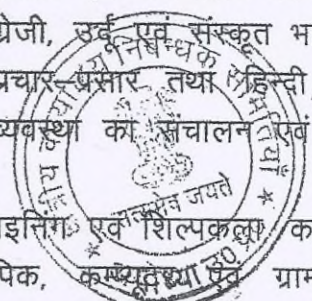 ग्रेजी, उर्दू एवं संस्कृत भ
प्रचार-प्रसार तथा हिन्दी
व्यवस्था का संचालन एवं
इनिंग एवं शिल्पकला क
पिक, ग्राम
सत्यमेव जयते